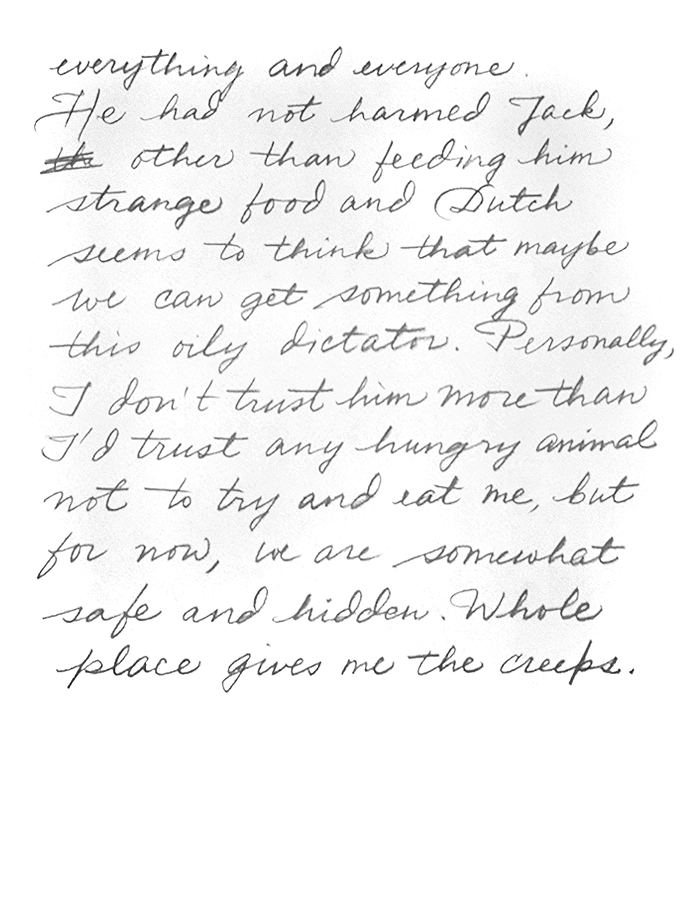 everything and everyone.
He had not harmed Jack,
the other than feeding him
strange food and Dutch
seems to think that maybe
we can get something from
this oily dictator. Personally,
I don't trust him more than
I'd trust any hungry animal
not to try and eat me, but
for now, we are somewhat
safe and hidden. Whole
place gives me the creeps.